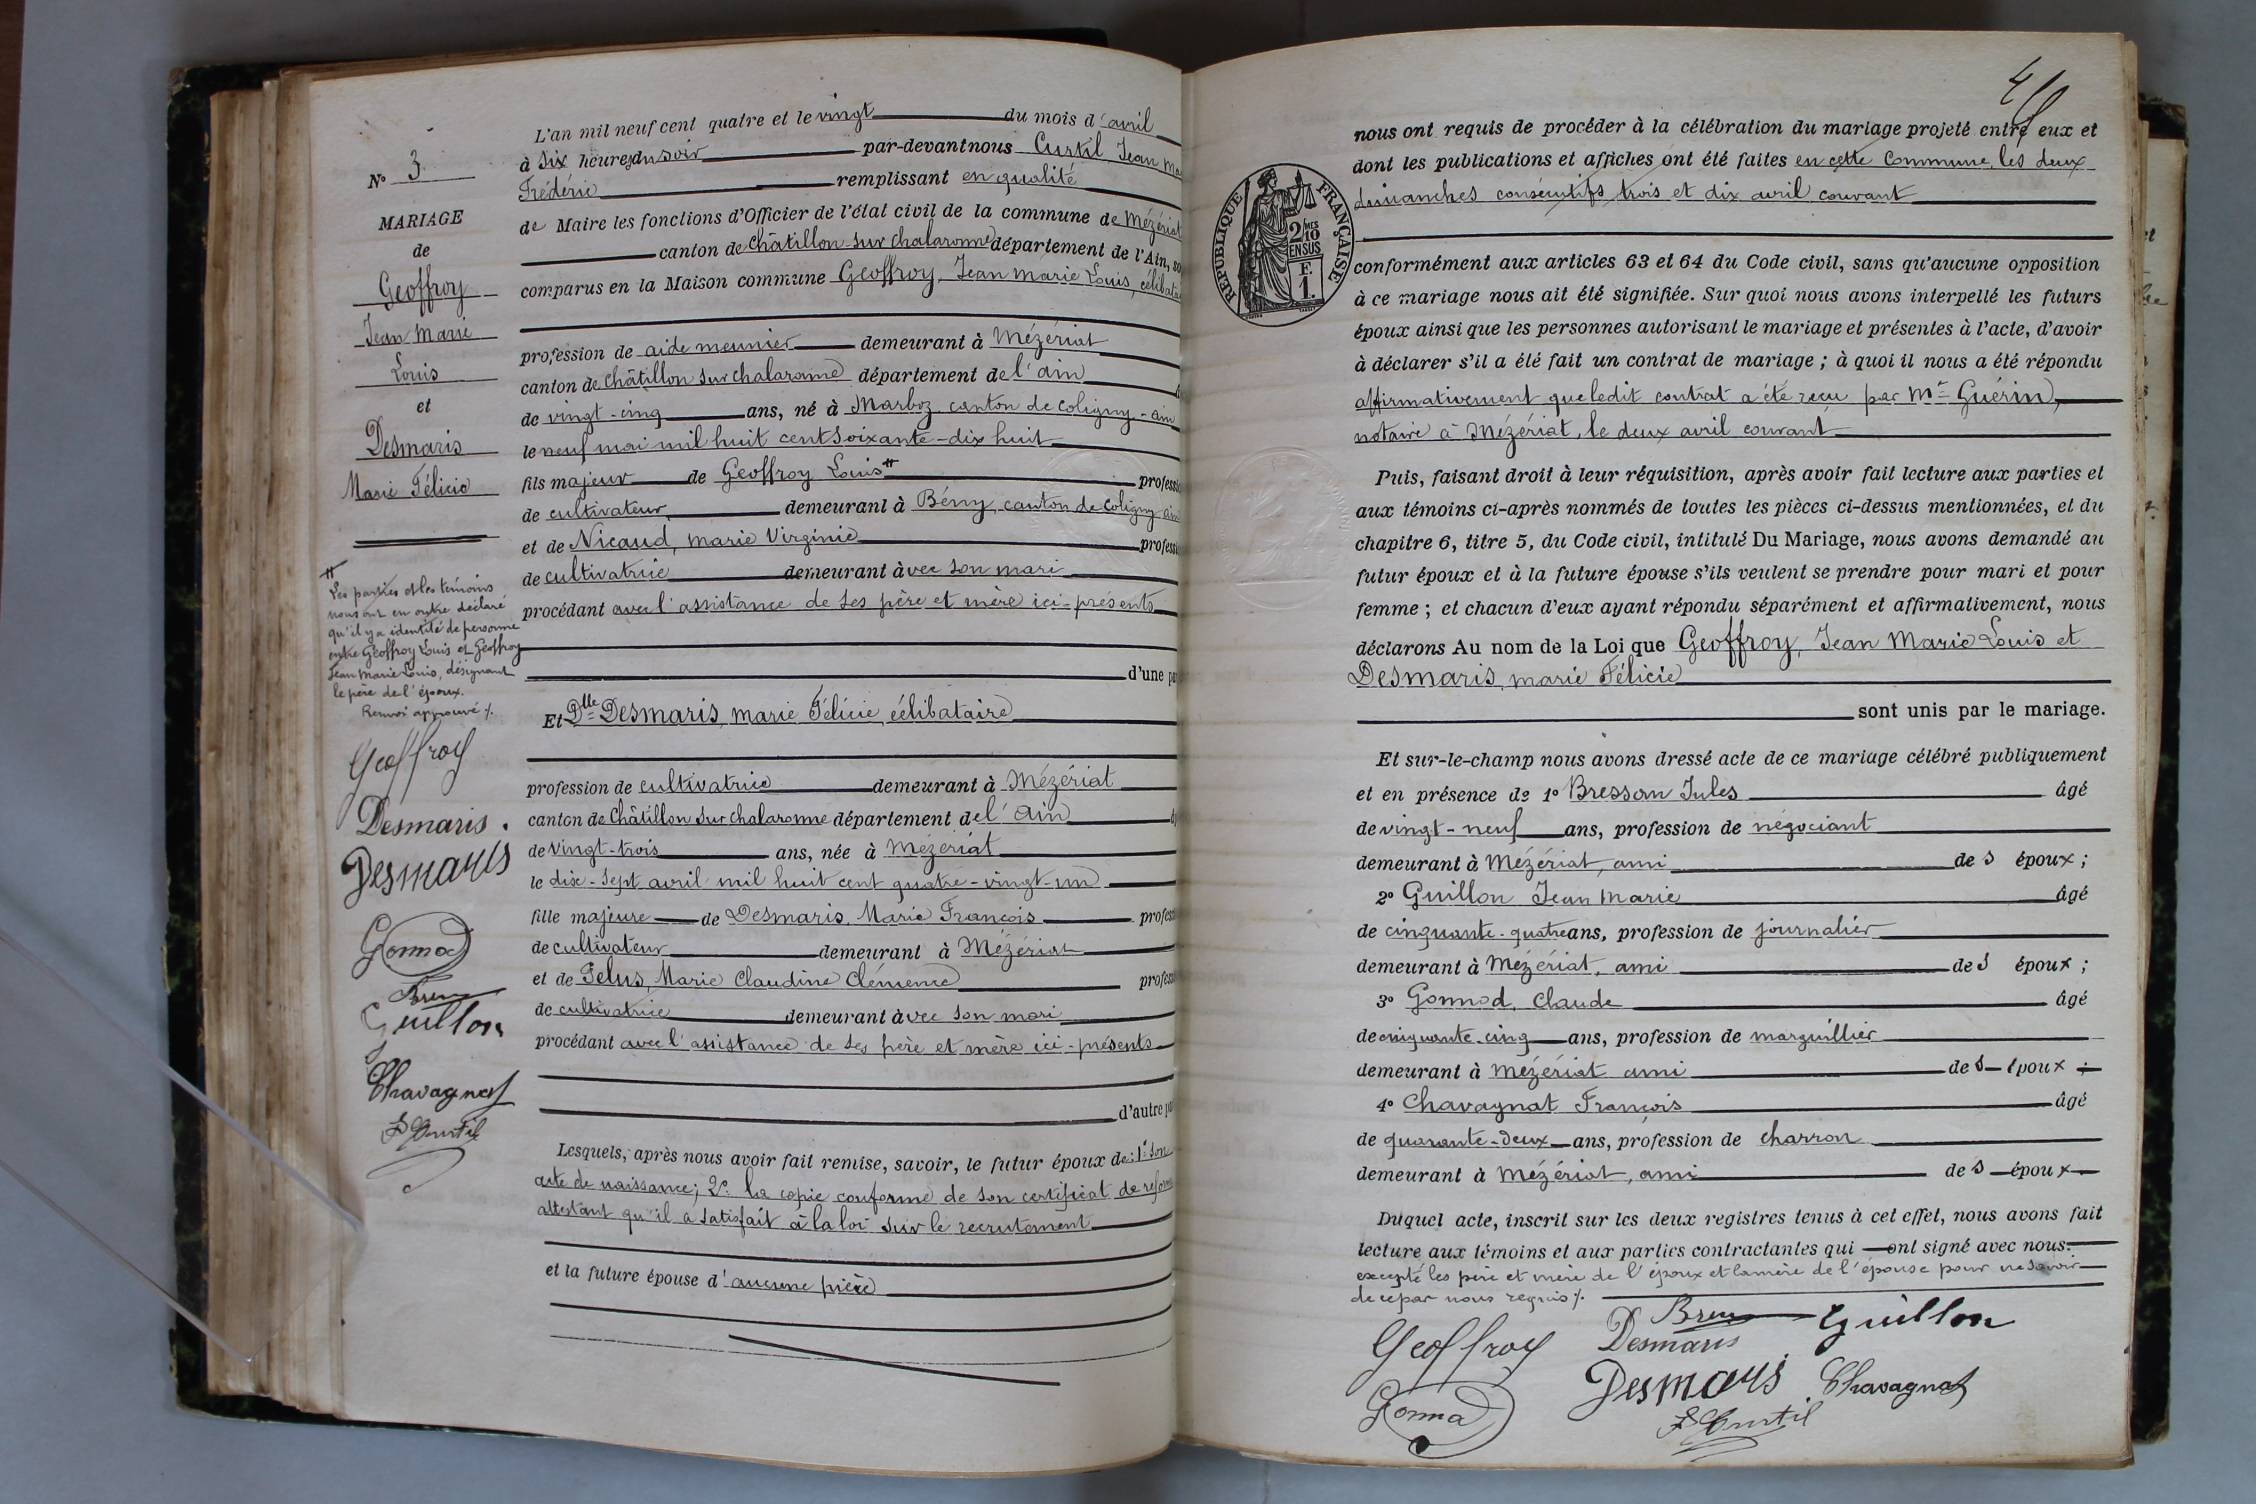 N° 3
MARIAGE
de
Geoffroy
Jean Marie
Louis
et
Desmaris
Marie Félicie
Les parties et les témoins
nous ont en outre déclaré
qu'il y a identité de personne
entre Geoffroy Louis et Geoffroy
Jean Marie Louis, désignant
le père de l'époux.
Renvoi approuvé ./.
Geoffroy
Desmaris.
Desmaris
Gonnod
Guillon
Chavagnat
F Curtil
L'an mil neuf cent quatre et le vingt du mois d'avril
à six heures du soir par-devant nous Curtil Jean Ma
Frédéric remplissant en qualité
de Maire les fonctions d'Officier de l'état civil de la commune de Mézériat
canton de Châtillon-sur-Chalaronne département de l'Ain, so
comparus en la Maison commune Geoffroy, Jean Marie Louis, célibatai
profession de aide meunier demeurant à Mézériat
canton de Châtillon sur Chalaronne département de l'ain
de vingt-cinq ans, né à Marboz canton de Coligny-ain
le neuf mai mil huit cent soixante-dix huit
fils majeur de Geoffroy Louis # professi
de cultivateur demeurant à Bény, canton de Coligny ain
et de Nicaud, marie Virginie professi
de cultivatrice demeurant avec son mari
procédant avec l'assistance de ses père et mère ici-présents
d'une pa
Et Dlle Desmaris, marie Félicie, célibataire
profession de cultivatrice demeurant à Mézériat
canton de Châtillon sur Chalaronne département de l'ain
de vingt-trois ans, née à Mézériat
le dix-sept avril mil huit cent quatre-vingt-un
fille majeure de Desmaris, Marie François profess
de cultivateur demeurant à Mézériat
et de Felus, Marie Claudine Clémence profess
de cultivatrice demeurant avec son mari
procédant avec l'assistance de ses père et mère ici-présents
d'autre pa
Lesquels, après nous avoir fait remise, savoir, le futur époux de: 1° son
acte de naissance; 2° la copie conforme de son certificat de réform
attestant qu'il a satisfait à la loi sur le recrutement
et la future épouse d'aucune pièce
nous ont requis de procéder à la célébration du mariage projeté entre eux et
dont les publications et affiches ont été faites en cette commune, les deux
dimanches consécutifs trois et dix avril courant
RÉPUBLIQUE FRANÇAISE
2/MES
10
EN SUS
F.
1.
conformément aux articles 63 et 64 du Code civil, sans qu'aucune opposition
à ce mariage nous ait été signifiée. Sur quoi nous avons interpellé les futurs
époux ainsi que les personnes autorisant le mariage et présentes à l'acte, d'avoir
à déclarer s'il a été fait un contrat de mariage ; à quoi il nous a été répondu
affirmativement que ledit contrat a été reçu par Me Guérin,
notaire à Mézériat, le deux avril courant
Puis, faisant droit à leur réquisition, après avoir fait lecture aux parties et
aux témoins ci-après nommés de toutes les pièces ci-dessus mentionnées, et du
chapitre 6, titre 5, du Code civil, intitulé Du Mariage, nous avons demandé au
futur époux et à la future épouse s'ils veulent se prendre pour mari et pour
femme ; et chacun d'eux ayant répondu séparément et affirmativement, nous
déclarons Au nom de la Loi que Geoffroy, Jean Marie Louis et
Desmaris, marie Félicie
sont unis par le mariage.
Et sur-le-champ nous avons dressé acte de ce mariage célébré publiquement
et en présence de 1° Bressan Jules âgé
de vingt-neuf ans, profession de négociant
demeurant à Mézériat, ami des époux ;
2° Guillon Jean Marie âgé
de cinquante-quatre ans, profession de journalier
demeurant à Mézériat, ami des époux ;
3° Gonnod, Claude âgé
de cinquante-cinq ans, profession de marguillier
demeurant à Mézériat ami des époux ;
4° Chavagnat François âgé
de quarante-deux ans, profession de charron
demeurant à Mézériat, ami des époux
Duquel acte, inscrit sur les deux registres tenus à cet effet, nous avons fait
lecture aux témoins et aux parties contractantes qui ont signé avec nous.
excepté les père et mère de l'époux et la mère de l'épouse pour ne savoir
de ce par nous requis ./.
Guillon
Geoffroy Desmaris
Desmaris Chavagnat
Gonnod
F Curtil